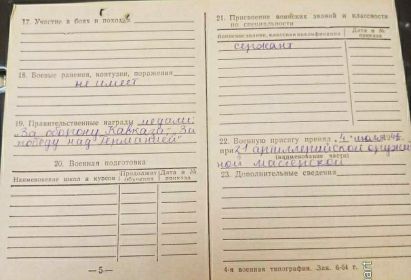 17. Участие в боях и походах
18. Военные ранения, контузии, поражения
не имеет
19. Правительственные награды медали:
"За оборону Кавказа", "За
победу над Германией"
20. Военная подготовка
Наименование школ и курсов
Продолжит. обучения
Дата и № приказа
— 5 —
21. Присвоение воинских званий и классности
по специальности
Наименование, классная квалификация
Дата и №
приказа
сержант
22. Военную присягу принял „4" мая
при 21 артиллерийской оружей-
(наименование части)
ной мастерской
23. Дополнительные сведения
4-я военная типография. Зак. 6-54 г.